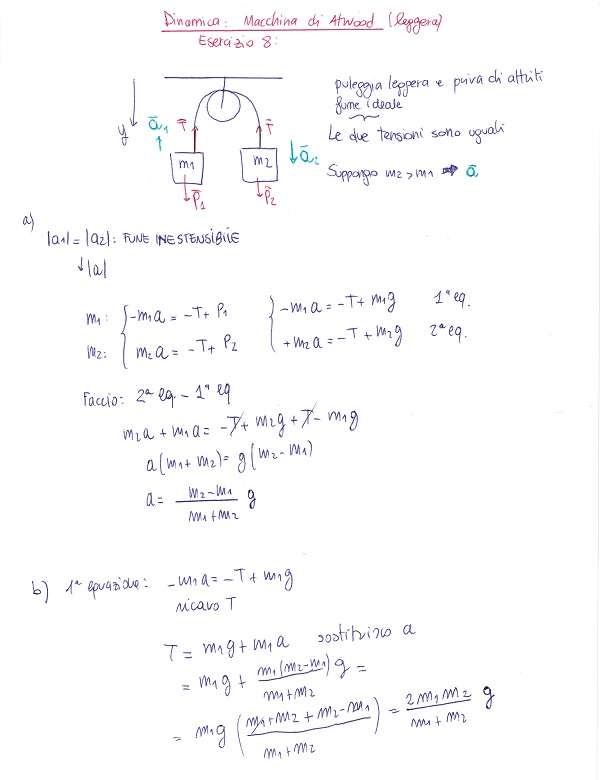 Dinamica: Macchina di Atwood (leggera)
Esercizio 8:
puleggia leggera e priva di attriti
fune ideale
Le due tensioni sono uguali
Suppongo m2 > m1 ➡ ā
y
ā1
T̄
T̄
m1
m2
ā2
P̄1
P̄2
a)
|a1| = |a2| : FUNE INESTENSIBILE
↓ |a|
m1: { -m1a = -T + P1 { -m1a = -T + m1g 1ª eq.
m2: { m2a = -T + P2 { +m2a = -T + m2g 2ª eq.
Faccio: 2ª eq - 1ª eq
m2a + m1a = -T + m2g + T - m1g
a(m1 + m2) = g(m2 - m1)
a = (m2 - m1)/(m1 + m2) g
b) 1ª equazione: -m1a = -T + m1g
ricavo T
T = m1g + m1a sostituisco a
= m1g + m1(m2 - m1)/(m1 + m2) g =
= m1g ((m1 + m2 + m2 - m1)/(m1 + m2)) = 2m1m2/(m1 + m2) g